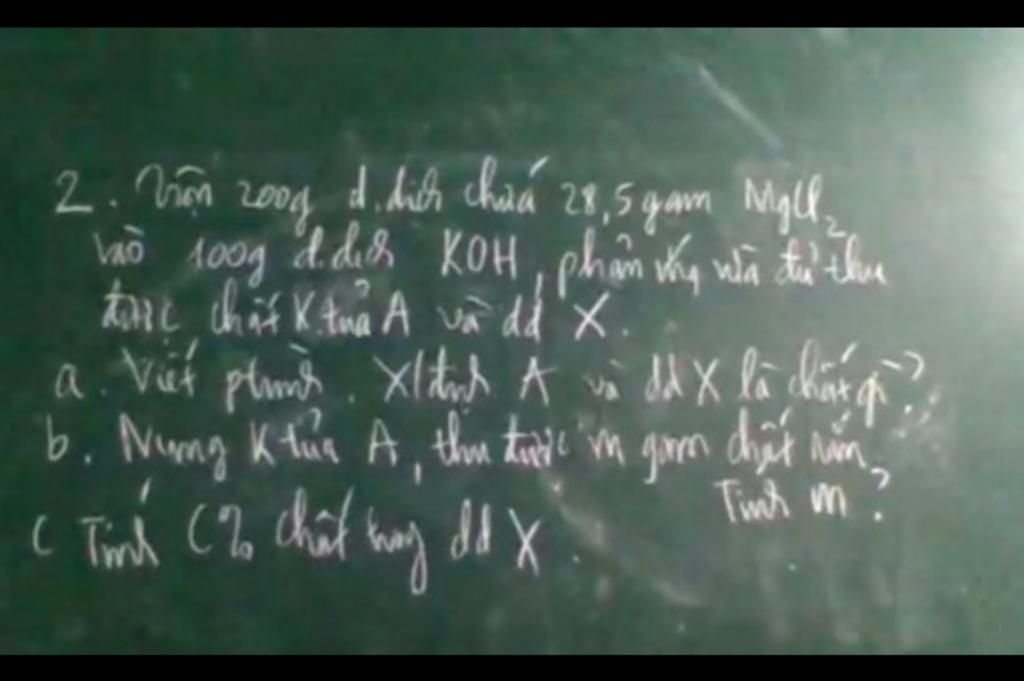 2. Trộn 200g d.dịch chứa 28,5 gam MgCl₂
vào 100g d.dịch KOH, phản ứng vừa đủ thu
được chất K.tủa A và dd X.
a. Viết ptrình. X/định A và dd X là chất gì?
b. Nung K tủa A, thu được m gam chất rắn,
Tính m?
c Tính C% chất trong dd X.